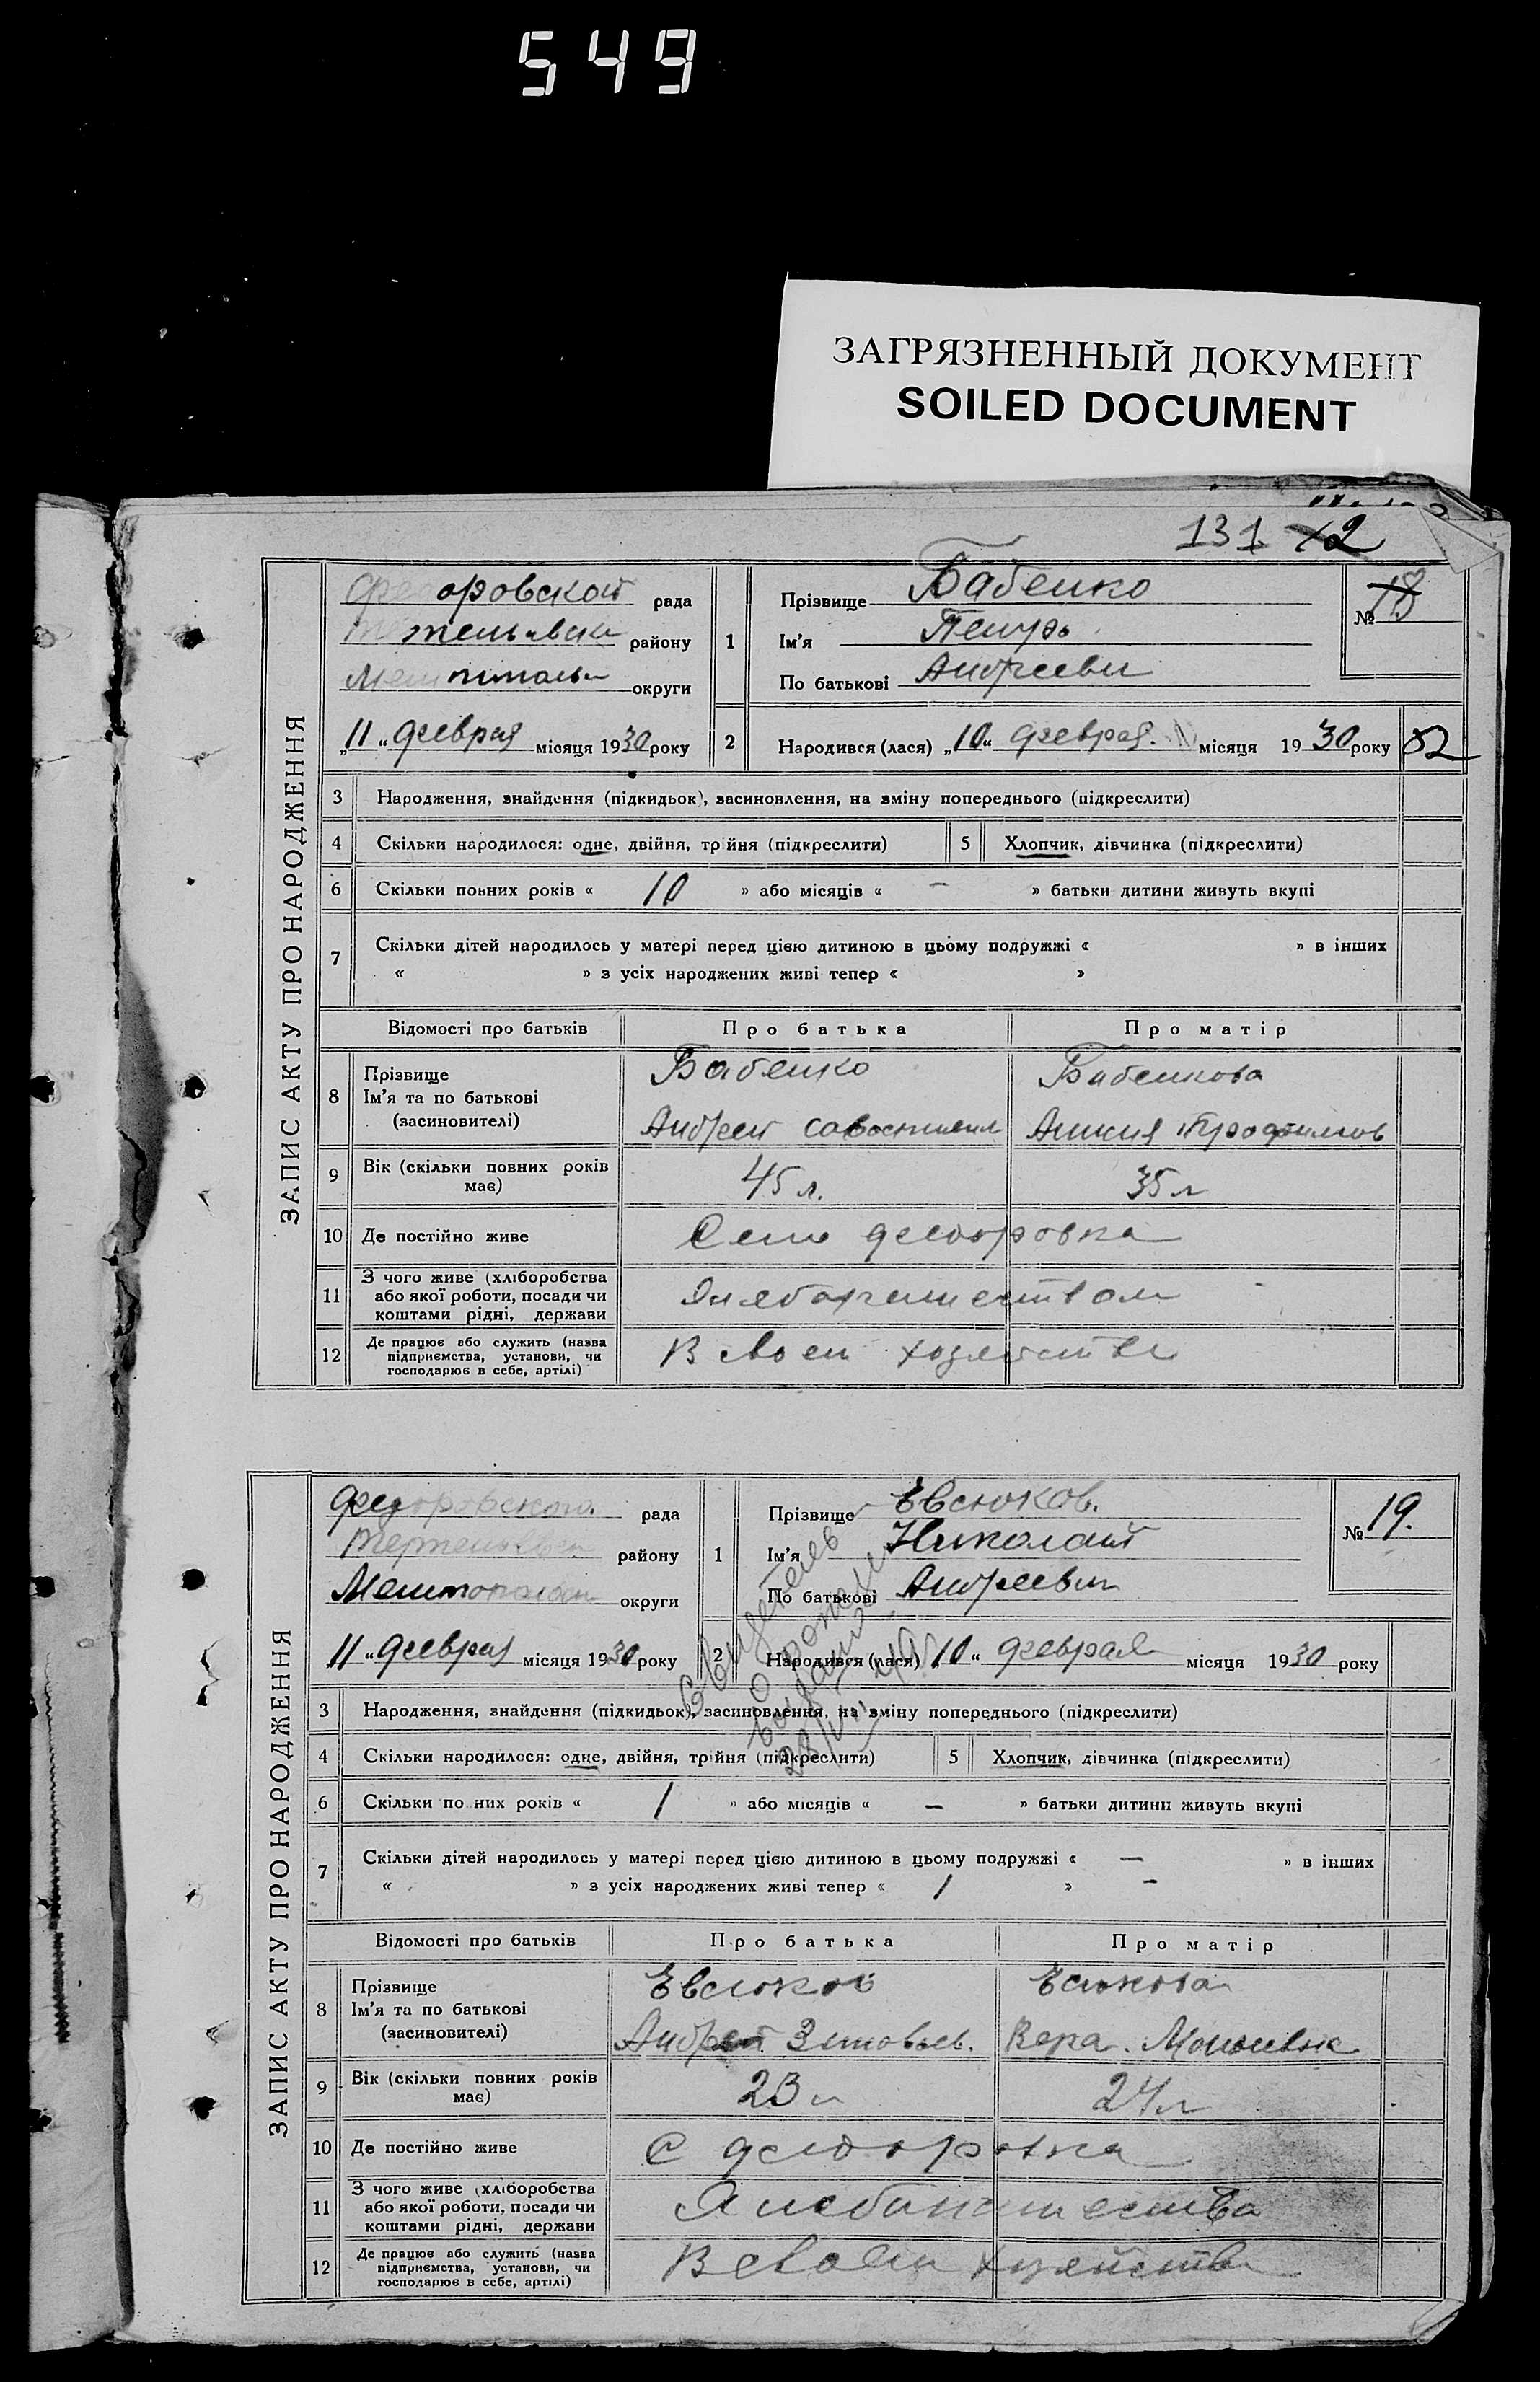 549
ЗАГРЯЗНЕННЫЙ ДОКУМЕНТ
SOILED DOCUMENT
131 12
ЗАПИС АКТУ ПРО НАРОДЖЕННЯ
Федоровской рада
району
округи
„11“ февраля місяця 1930 року
1
Прізвище Бабенко
Ім'я
По батькові Андрееви
№ 18
2 Народився (лася) „10“ февраля. місяця 1930 року
3 Народження, знайдення (підкидьок), засиновлення, на зміну попереднього (підкреслити)
4 Скільки народилося: одне, двійня, трійня (підкреслити) 5 Хлопчик, дівчинка (підкреслити)
6 Скільки повних років « 10 » або місяців « – » батьки дитини живуть вкупі
7 Скільки дітей народилось у матері перед цією дитиною в цьому подружжі « » в інших
« » з усіх народжених живі тепер « »
Відомості про батьків Про батька Про матір
8 Прізвище
Ім'я та по батькові
(засновителі)
Бабенко
Андрей
Бабенкова
9 Вік (скільки повних років має) 45 л. 35 л
10 Де постійно живе Село Федоровка
11 З чого живе (хліборобства
або якої роботи, посади чи
коштами рідні, держави
12 Де працює або служить (назва
підприємства, установи, чи
господарює в себе, артілі)
В своем хозяйстве
ЗАПИС АКТУ ПРО НАРОДЖЕННЯ
Федоровского рада
району
округи
11 “ февраля місяця 1930 року
1
Прізвище Евсюков.
Ім'я Николай
По батькові Андреевич
№ 19.
2 Народився (лася) 10 “ февраля місяця 1930 року
3 Народження, знайдення (підкидьок), засиновлення, на зміну попереднього (підкреслити)
4 Скільки народилося: одне, двійня, трійня (підкреслити) 5 Хлопчик, дівчинка (підкреслити)
6 Скільки по них років « 1 » або місяців « – » батьки дитини живуть вкупі
7 Скільки дітей народилось у матері перед цією дитиною в цьому подружжі « – » в інших
« » з усіх народжених живі тепер « 1 » –
Відомості про батьків Про батька Про матір
8 Прізвище
Ім'я та по батькові
(засиновителі)
Евсюков
Андрей Зиновьев.
Есюкова
Вера.
9 Вік (скільки повних років має) 23 л 24 л
10 Де постійно живе С Федоровка
11 З чого живе (хліборобства
або якої роботи, посади чи
коштами рідні, держави
12 Де працює або служить (назва
підприємства, установи, чи
господарює в себе, артілі)
В своем хозяйстве